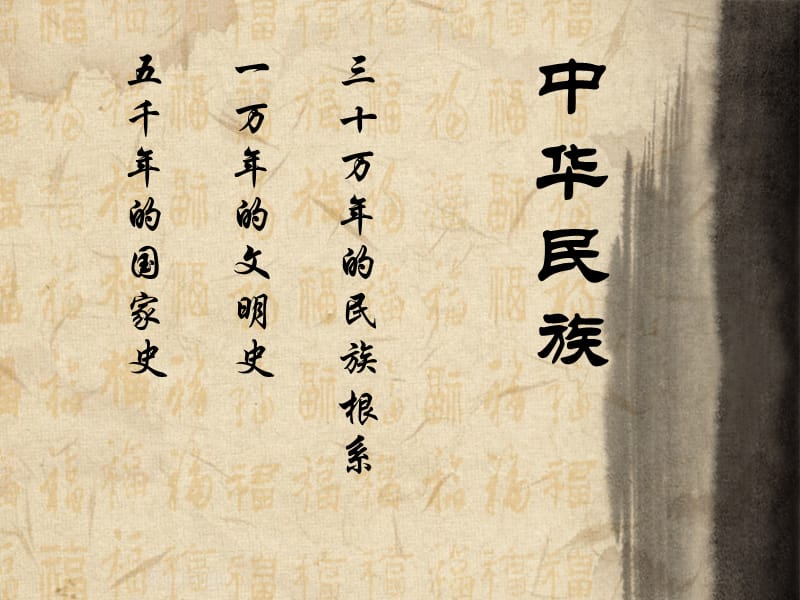 中华民族
三十万年的民族根系
一万年的文明史
五千年的国家史